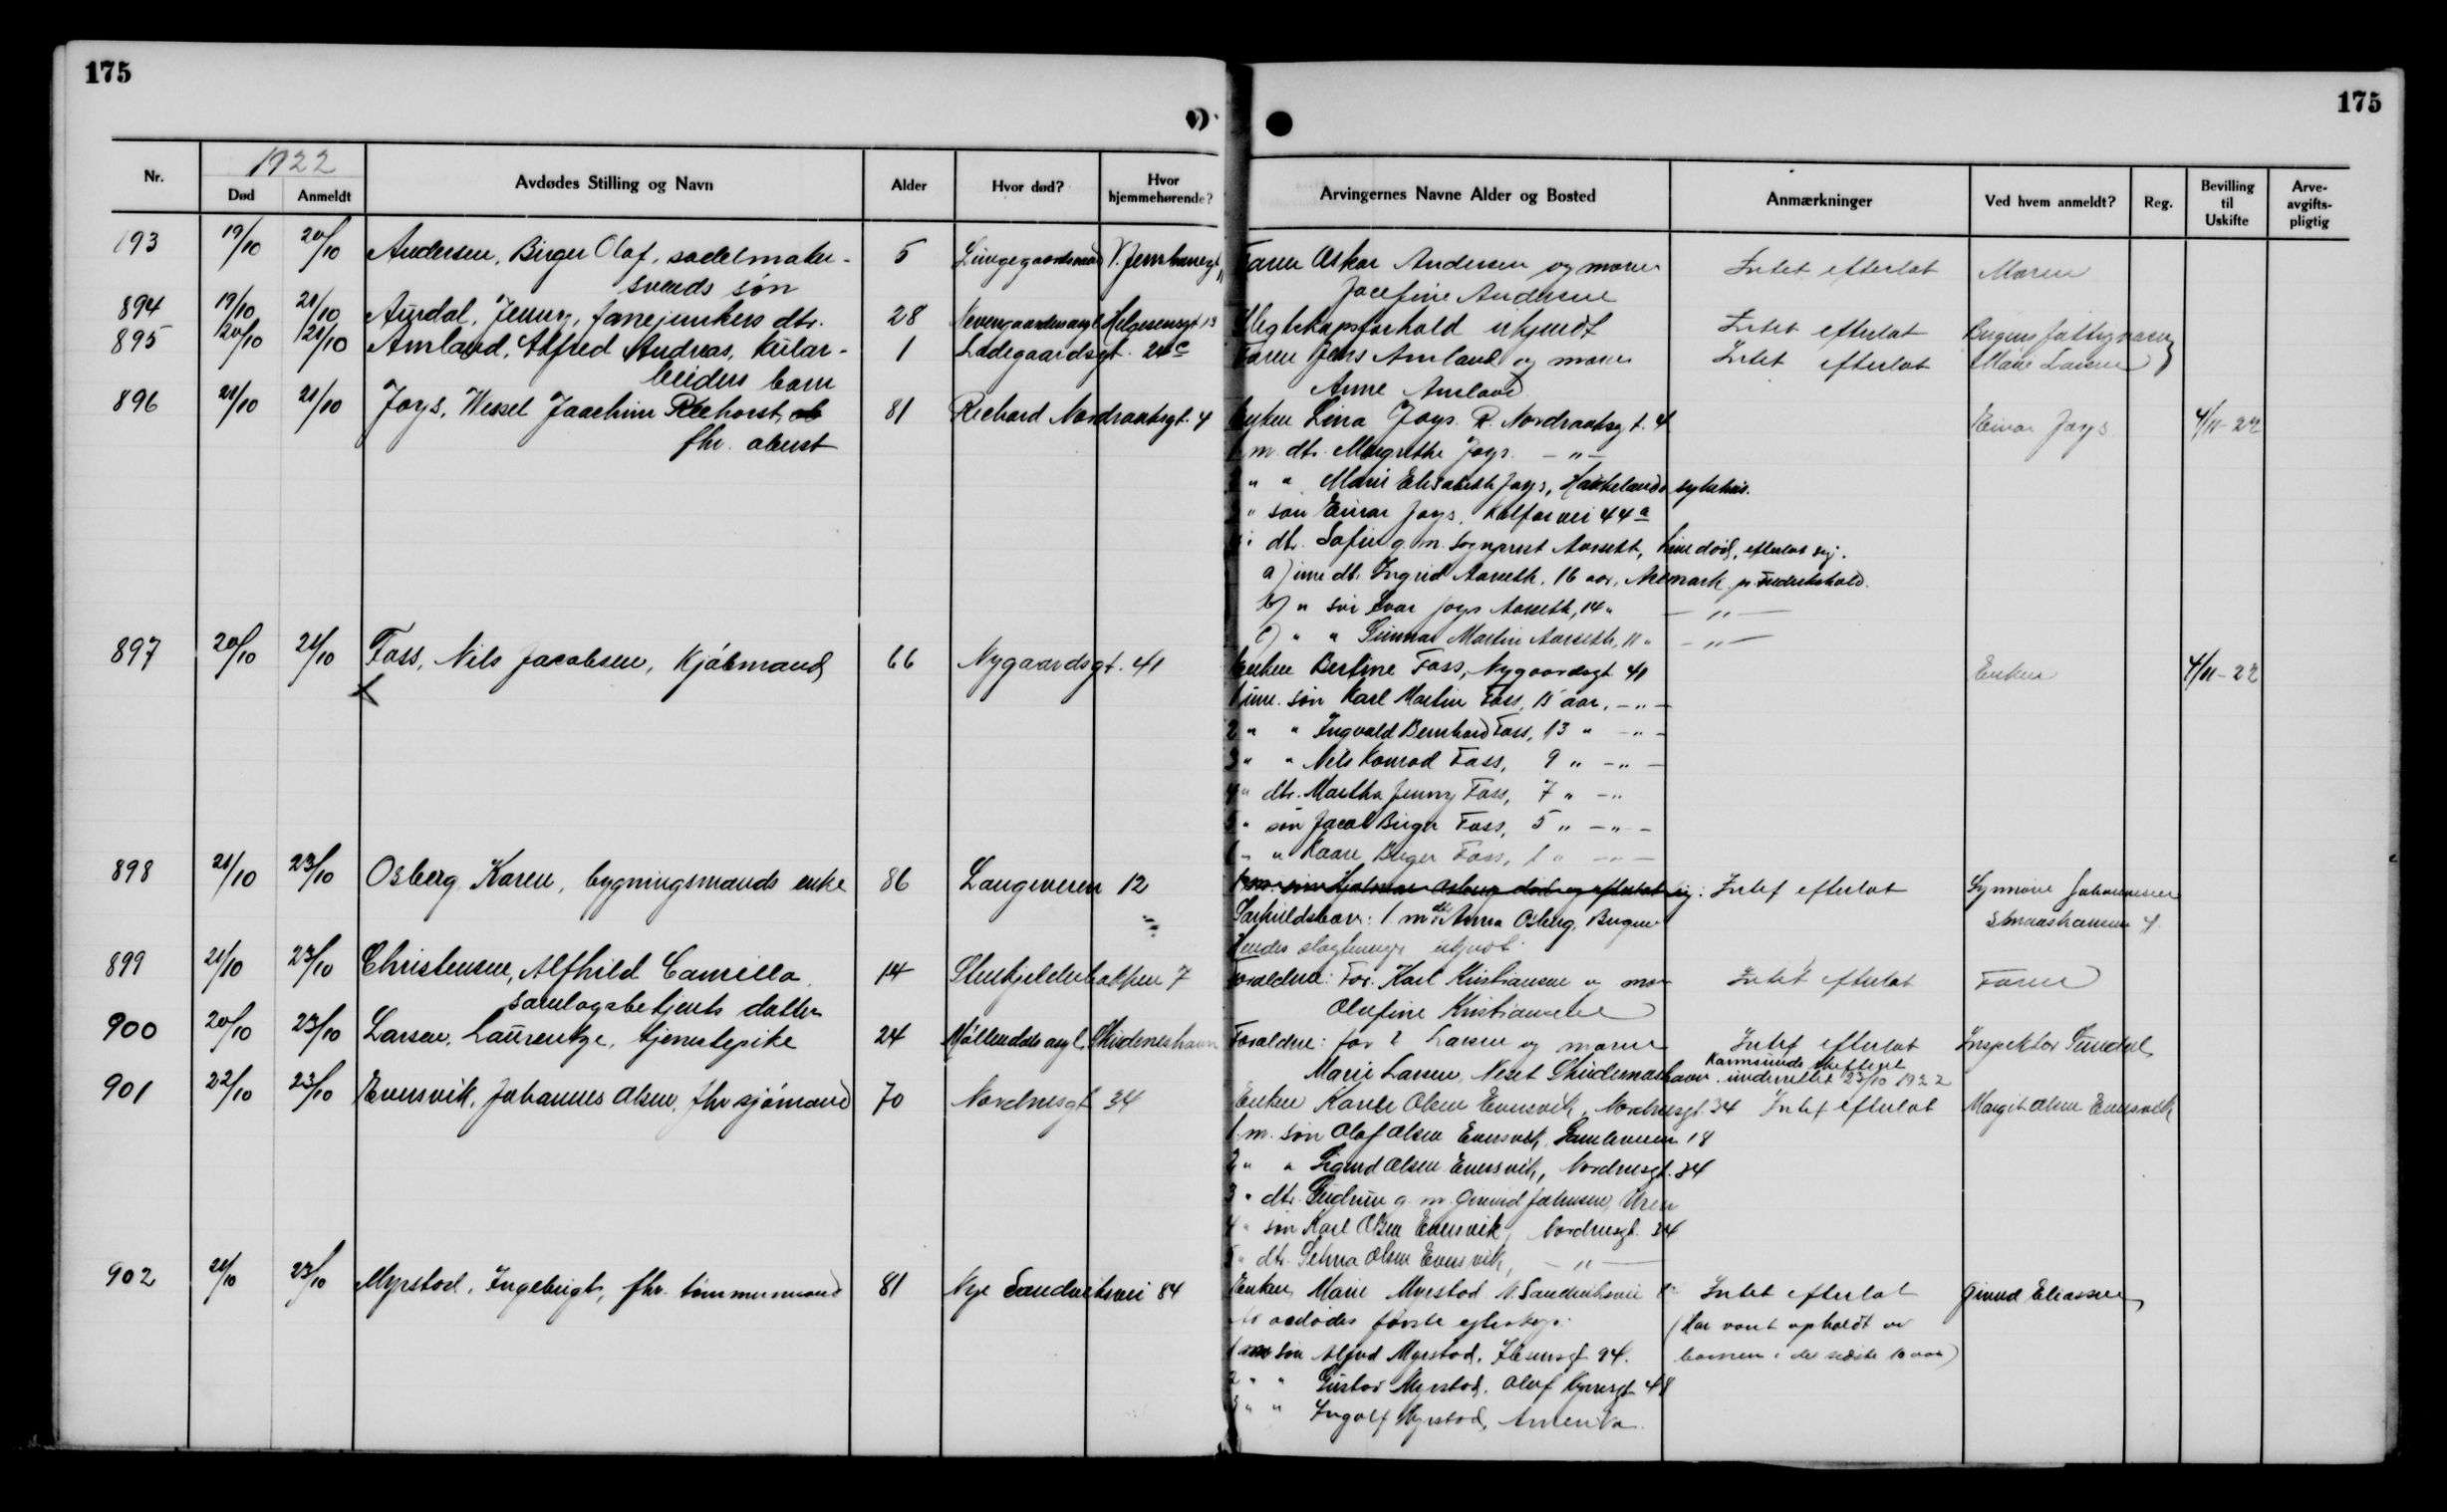 175
175
1922
Nr.
Død
Anmeldt
Avdødes Stilling og Navn
Alder
Hvor død?
Hvor hjemmehørende?
Arvingernes Navne Alder og Bosted
Anmærkninger
Ved hvem anmeldt?
Reg.
Bevilling til Uskifte
Arve-avgifts-pligtig
893 19/10 20/10 Andersen, Birger Olaf, sadelmaker- 5 V. Jernbanegt. Faren Oskar Andersen og moren Intet efterlot Moren
svends søn Josefine Andersen
894 19/10 21/10 Aurdal, Jenny, fanejunkers dtr. 28 Helgesensgt 13 Slegtskapsforhold ukjendt Intet efterlot Bergens fattigvæsen
895 20/10 21/10 Amland, Alfred Andreas, kular- 1 Ladegaardsgt. 24c Faren Jens Amland og moren Intet efterlot Marie Larsen
beiders barn Anne Amland
896 21/10 21/10 Joys, Wessel Joachim Reehorst, 81 Richard Nordraaksgt. 4 Enken Lina Joys R. Nordraaksgt. 4 Einar Joys 4/11-22
fhv. oberst 1 m. dtr. Margrethe Joys - " -
2 " " Marie Elisabeth Joys, Haukelands sykehus.
3 " søn Einar Joys, Kalfarvei 44a
4 " dtr. Sofie g. m. sogneprest Aarseth, hun død, efterlot sig.
a) um. dtr. Ingrid Aarseth, 16 aar, Aremark pr. Fredrikshald.
b) " søn Ivar Joys Aarseth, 14 " - " -
c) " " Gunnar Martin Aarseth, 11 " - " -
897 20/10 21/10 Fass, Nils Jacobsen, Kjøbmand 66 Nygaardsgt. 41 Enken Bertine Fass, Nygaardsgt 41 Enken 4/11-22
x 1 um. søn Karl Martin Fass, 15 aar, - " -
2 " " Ingvald Bernhard Fass, 13 " - " -
3 " " Nils Konrad Fass, 9 " - " -
4 " dtr. Martha Jenny Fass, 7 " - "
5 " søn Jacob Birger Fass, 5 " - " -
6 " " Kaare Birger Fass, 1 " - " -
898 21/10 23/10 Osberg Karen, bygningsmands enke 86 Langeveien 12 1 m. søn Hjalmar Osberg død og efterlot sig: Intet efterlot Synnøve Johannesen
Særkuldsbarn: 1. m. dtr. Anna Osberg, Bergen Strandhaugen 4
Hendes slegtninge ukjendt.
899 21/10 23/10 Christensen, Alfhild Camilla 14 Stenkjelderbakken 7 Forældrene: Far Karl Kristiansen og mor Intet efterlot Faren
samlagsbetjents datter Olufine Kristiansen
900 20/10 23/10 Larsen, Laurentze, tjenestepike 24 Møllendals asyl. Skudeneshavn Forældrene: far ? Larsen og moren Intet efterlot Inspektør
Marie Larsen, Neset Skudeneshavn. Karmsunds skifteret underrettet 23/10 1922
901 22/10 23/10 Evensvik, Johannes Olsen, fhv sjømand 70 Nordnesgt 34 Enken Karen Olsen Evensvik, Nordnesgt. 34 Intet efterlot Margit Olsen Evensvik
1 m. søn Olaf Olsen Evensvik, 18
2 " " Sigurd Olsen Evensvik, Nordnesgt. 34
3 " dtr. Gudrun g. m. Johnsen,
4 " søn Karl Olsen Evensvik, Nordnesgt. 34
5 " dtr. Selma Olsen Evensvik, - " -
902 21/10 23/10 Myrstad, Ingebrigt, fhv. tømmermand 81 Nye Sandviksvei 84 Enken Marie Myrstad N. Sandviksvei Intet efterlot Eliassen
avdødes første egteskap: (Har vært opholdt av
1 m søn Alfred Myrstad, Ibsensgt 94. barnen i de sidste 10 aar)
2 " " Gustav Myrstad, Olaf Kyrresgt 48
3 " " Ingolf Myrstad, Amerika.